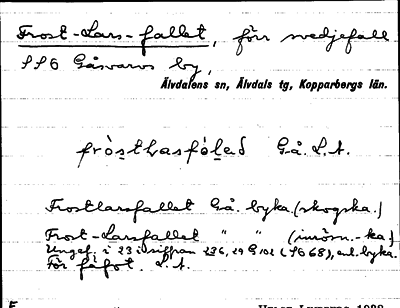 Frost-Lars-fallet, förr svedjefall
SSÖ Gåsvarvs by,
Älvdalens sn, Älvdals tg, Kopparbergs län.
Gå. L.A.
Frostlarsfallet Gå. byka. (skogska.)
Frost-Larsfallet " " (inrösn.-ka.)
Ungef. i 23 i siffran 236, 29 G 102 (SÖ 68), enl. byka.
För fäfot. L.A.